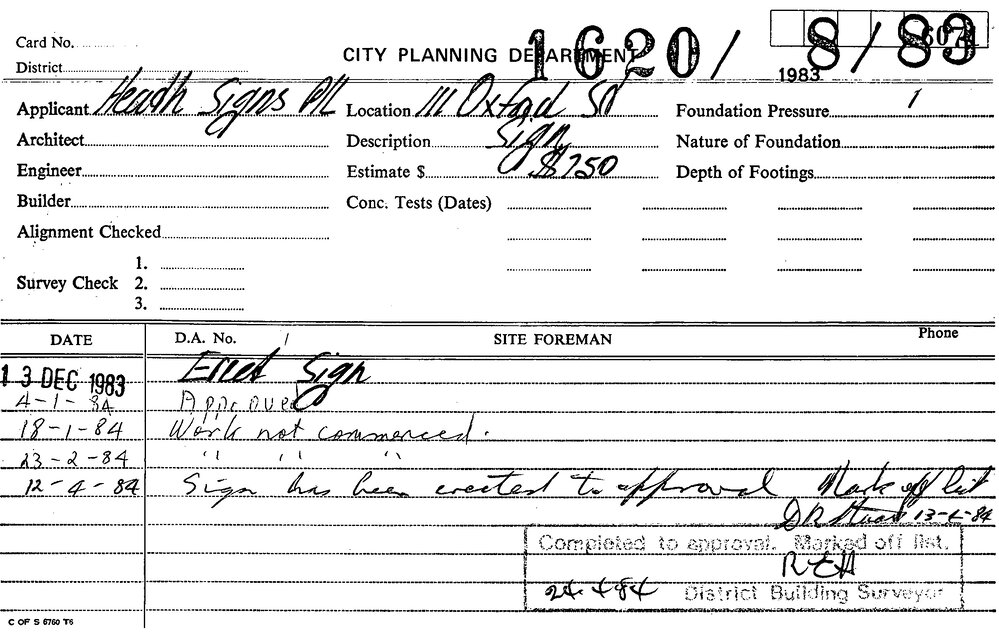 Card No.
CITY PLANNING DEPARTMENT 1620/ 8/83
District
1983
Applicant Heath Signs P/L Location 111 Oxford St Foundation Pressure /
Architect Description Sign Nature of Foundation
Engineer Estimate $ $750 Depth of Footings
Builder Conc. Tests (Dates)
Alignment Checked
1.
Survey Check 2.
3.
DATE D.A. No. / SITE FOREMAN Phone
13 DEC 1983 Erect Sign
4-1-84 Approved
18-1-84 Work not commenced.
23-2-84 " " "
12-4-84 Sign has been erected to approval Mark off list
13-4-84
Completed to approval. Marked off list.
24.4.84 District Building Surveyor
C OF S 6760 T6